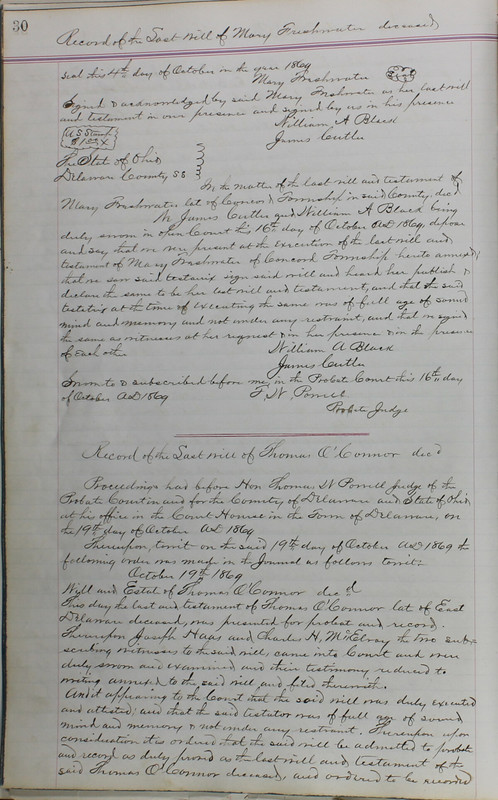 30
Record of the Last Will of Mary Freshwater deceased
seal this 4th day of October in the year 1869
Mary Freshwater
Signed & acknowledged by said Mary Freshwater as her last will
and testament in our presence and signed by us in his presence
William A Black
James Cutler
U S Stamp
The State of Ohio
Delaware County SS
In the matter of the last will and testament of
Mary Freshwater lat of Concord Township in said County, decd
We James Cutler and William A Black being
duly sworn in open Court this 16th day of October AD 1869, depose
and say that we were present at the execution of the last will and
testament of Mary Freshwater of Concord Township hereto annexed;
that we saw said testatrix sign said will and heard her publish &
declare the same to be her last will and testament, and that the said
testatrix at the time of executing the same was of full age of sound
mind and memory and not under any restraint, and that we signed
the same as witnesses at her request & in her presence & in the presence
of each other
William A Black
James Cutler
Sworn to & subscribed before me, in the Probate Court this 16th day
of October AD 1869
T. W. Powell
Probate Judge
Record of the Last Will of Thomas O'Connor decd
Proceedings had before Hon Thomas W Powell Judge of the
Probate Court in and for the County of Delaware and State of Ohio
at his office in the Court House in the Town of Delaware, on
the 19th day of October AD 1869
Thereupon, towit on the said 19th day of October AD 1869 the
following order was made in the Journal as follows towit:
October 19th 1869
Will and Estat of Thomas O'Connor decd
This day the last and testament of Thomas O'Connor lat of East
Delaware deceased, was presented for probat and record.
Thereupon Joseph Hays and Charles H. McElroy the two sub=
scribing witnesses to the said will, came into Court and were
duly sworn and examined and their testimony reduced to
writing annexed to the said will and filed therewith.
And it appearing to the Court that the said will was duly executed
and attested; and that the said testator was of full age of sound
mind and memory & not under any restraint. Thereupon upon
consideration it is ordered that the said will be admitted to probate
and record as duly proved as the last will and testament of the
said Thomas O'Connor deceased, and ordered to be recorded